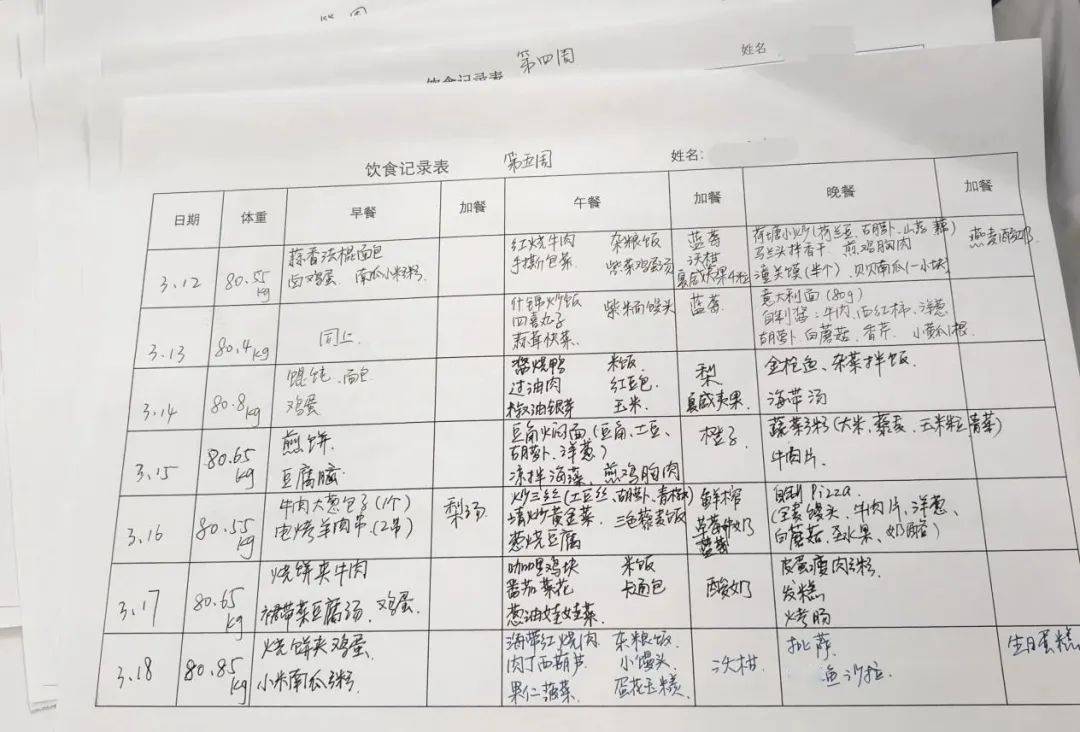 第四周
姓名
饮食记录表
饮食记录表 第五周 姓名:
日期 体重 早餐 加餐 午餐 加餐 晚餐 加餐
3.12 80.55kg
蒜香法棍面包
卤鸡蛋 南瓜小米粥
红烧牛肉 杂粮饭
手撕包菜 紫菜鸡蛋汤
蓝莓
沃柑
夏威夷果4粒
荷塘小炒(荷兰豆、胡萝卜、山药、藕)
马兰头拌香干 煎鸡胸肉
潼关馍(半个) 贝贝南瓜(一小块)
燕麦酸奶
3.13 80.4kg
同上
什锦炒饭 紫米面馒头
四喜丸子
蒜茸伏菜
蓝莓
意大利面(80g)
自制酱:牛肉、西红柿、洋葱
胡萝卜、白蘑菇、香芹、小黄瓜1根
3.14 80.8kg
馄饨、面包
鸡蛋
酱烧鸭 米饭
过油肉 红豆包
椒油银芽 玉米
梨
夏威夷果
金枪鱼、杂菜拌饭
海带汤
3.15 80.65kg
煎饼
豆腐脑
豆角焖面(豆角、土豆、
胡萝卜、洋葱)
凉拌海藻、煎鸡胸肉
橙子
蔬菜粥(大米、藜麦、玉米粒、青菜)
牛肉片
3.16 80.55kg
牛肉大葱包子(1个)
电烤羊肉串(2串)
梨汤
炒三丝(土豆丝、胡萝卜、青椒)
清炒黄金菜 三色藜麦饭
葱烧豆腐
鲜榨
草莓牛奶
蓝莓
自制pizza
(全麦馒头、牛肉片、洋葱、
白蘑菇、圣水果、奶酪)
3.17 80.65kg
烧饼夹牛肉
裙带菜豆腐汤、鸡蛋
咖喱鸡块 米饭
番茄菜花 卡通包
葱油娃娃菜
酸奶
皮蛋瘦肉粥
发糕
烤肠
3.18 80.85kg
烧饼夹鸡蛋
小米南瓜粥
海带红烧肉 杂粮饭
肉丁西葫芦 小馒头
果仁菠菜 蛋花玉米羹
沃柑
披萨
鱼沙拉
生日蛋糕